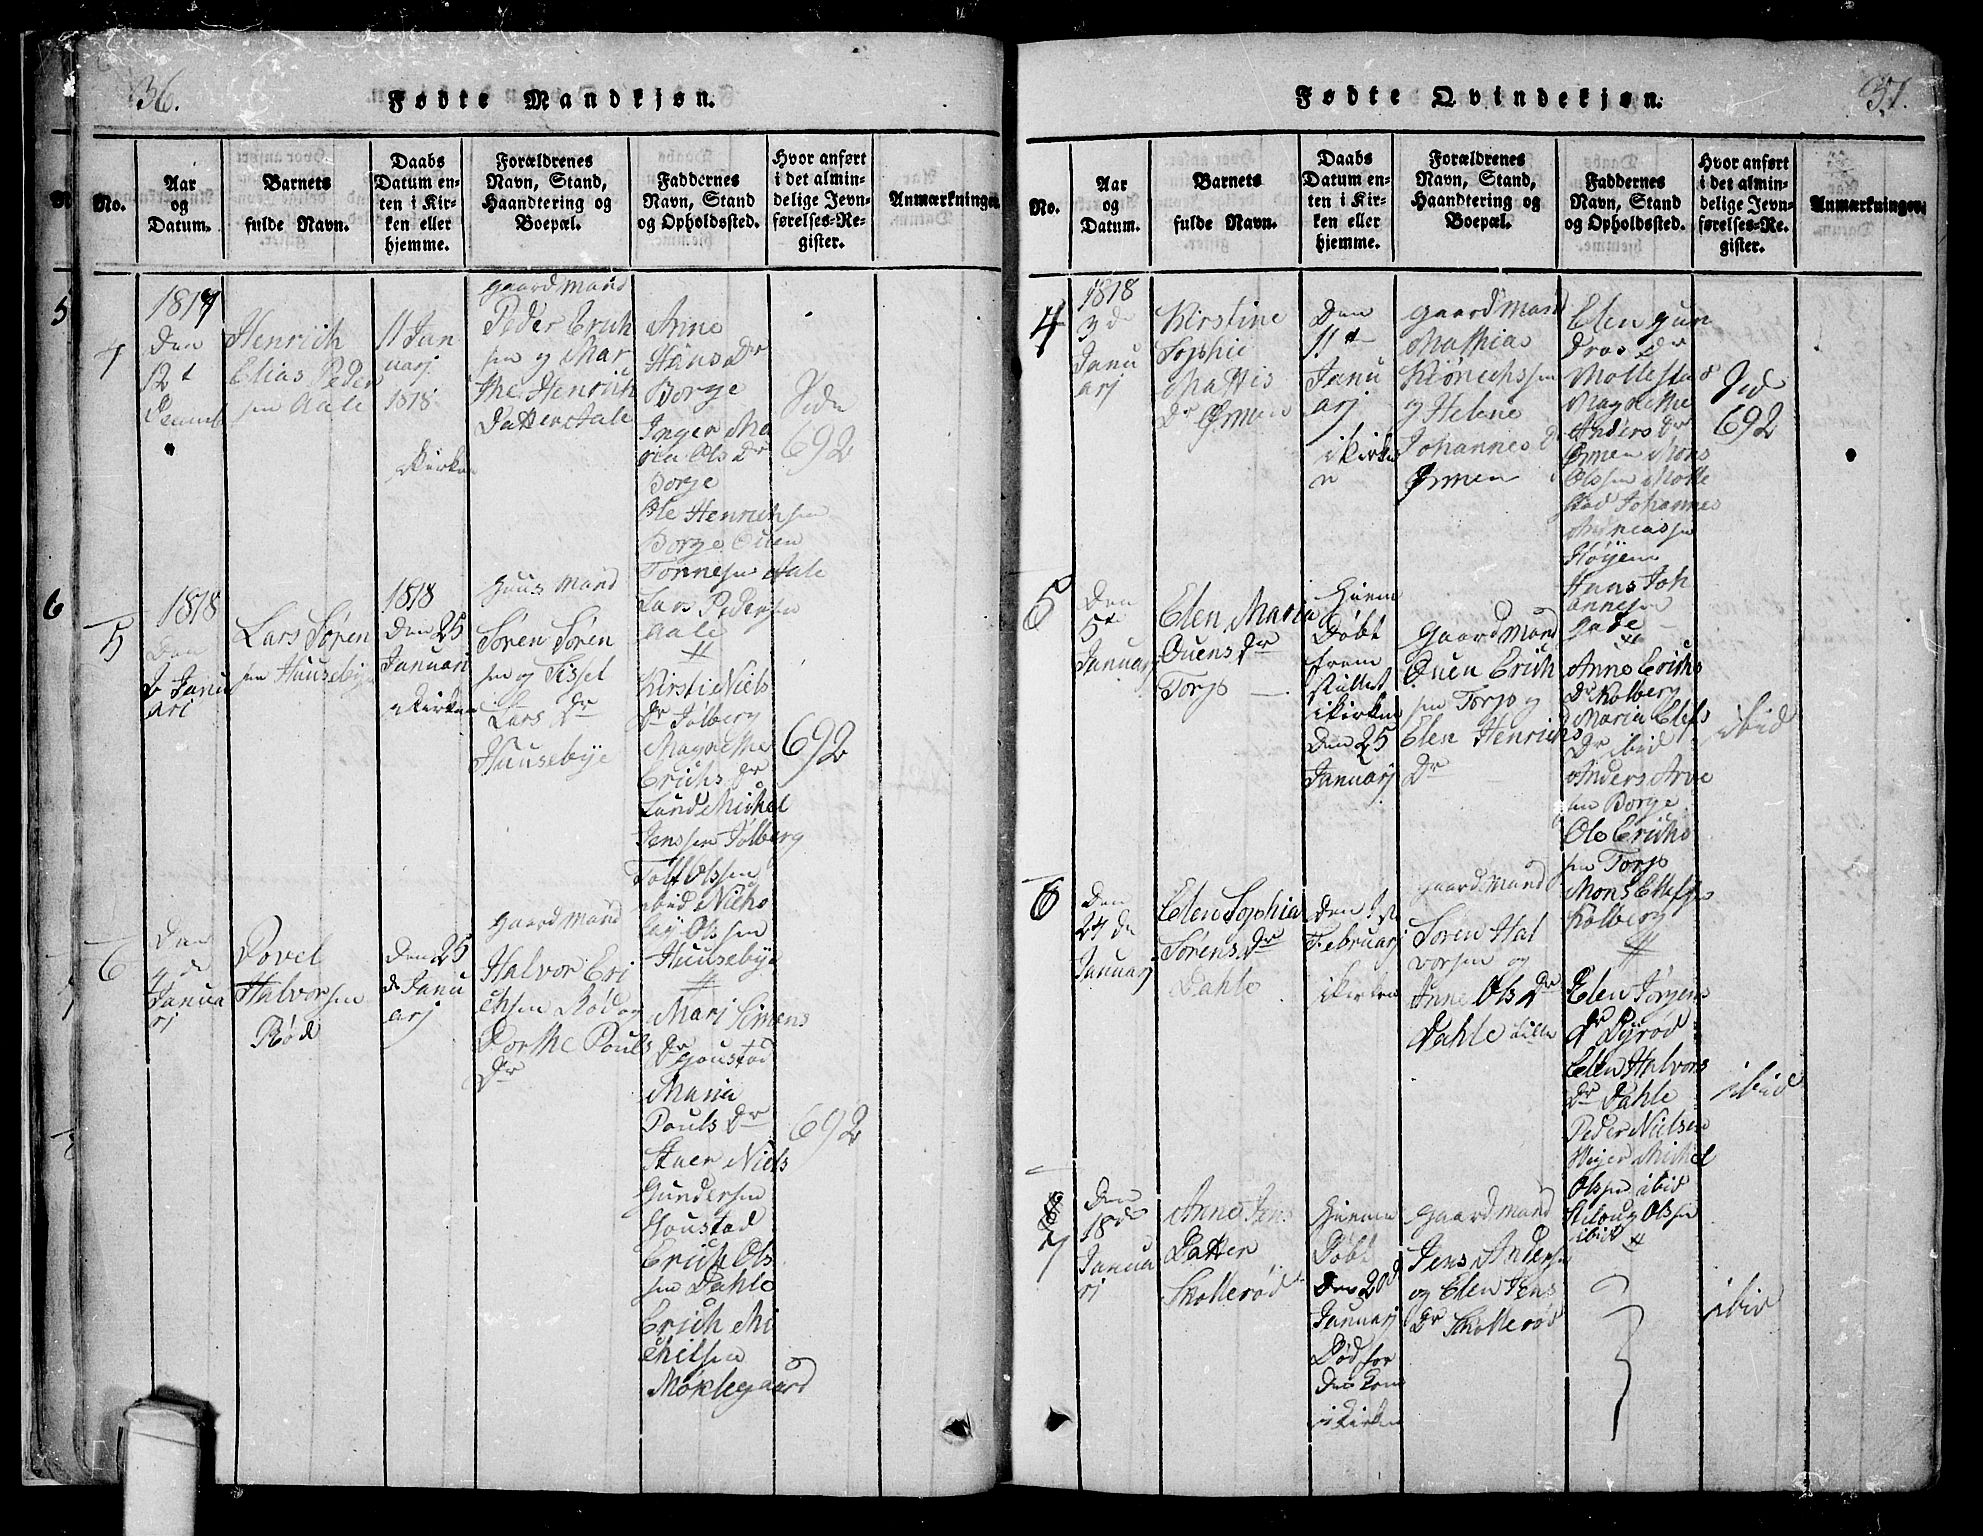 36.
Fødte Mandkjøn.
No.
Aar
og
Datum.
Barnets
fulde Navn.
Daabs
Datum en-
ten i Kir-
ken eller
hjemme.
Forældrenes
Navn, Stand,
Haandtering og
Boepæl.
Faddernes
Navn, Stand
og Opholdssted.
Hvor anført
i det almin-
delige Jevn-
førelses-Re-
gister.
Anmærkninger.
1817
Den
12t
Henrich
Elias Peder
sen Aale
11 Jan
uarj
1818
i Kirken
gaardmand
Peder Erich
sen og Mar
the Henrich
Datter Aale
Anne
Hans Dr
Borge
Inger Ma
ria Ols Dr
Borge
Ole Henrichsen
Borge Ouen
Tonnesen Aale
Lars Pedersen
Aale
Vide
692
5
1818
Den
2 Janu
ari
Lars Søren
sen Huusebye
1818
Den 25
Januari
i Kirken
Huusmand
Søren Søren
sen og Sissel
Lars Dr
Huusebye
Kirsti Niels
Dr Jølberg
Magrethe
Erichs Dr
Lund Michel
Jenssen Jølberg
Tolf Olssen
ibid Nicho
lay Olssen
Huusebye
692
6
Den
4 de
Janua
rj
Povel
Halvorsen
Rød
Den 25
de Janu
arj
gaardmand
Halvor Eri
chsen Rød og
Dorthe Pouls
Dr
Mari Simens
Dr goustad
Maria
Pouls Dr
Niels
Gundersen
Goustad
Erich Ols
sen Dahle
Erich Mi
chelsen
Moklegaard
692
37.
Fødte Qvindekjøn.
No.
Aar
og
Datum.
Barnets
fulde Navn.
Daabs
Datum en-
ten i Kir-
ken eller
hjemme.
Forældrenes
Navn, Stand,
Haandtering og
Boepæl.
Faddernes
Navn, Stand
og Opholdssted.
Hvor anført
i det almin-
delige Jevn-
førelses-Re-
gister.
Anmærkninger.
4
1818
3 de
Janu
arj
Kirstine
Sophie
Mattis
Dr Ormen
Den
11te
Janu
arj
i Kirke
n
gaardmand
Mathias
og Helene
Johannes D
Ormen
Elen gun
Dr
Mollestad
Magrethe
Anders Dr
Ormen Mons
Olssen Molle
stad Johannes
Andreassen
Høyen
Hans Joh
annesen
Vid
692
5
Den
5te
Januarj
Elen Maria
Ouens Dr
Torp
Hiem
Døbt
frem
stillet
i Kirken
Den 25
Januarj
gaardmand
Ouen Erich
sen Torp og
Elen Henrichs
Dr
Anne Erichs
Dr Kolberg
Maria
Dr ibid
Anders Arve
sen Borge
Ole Erichs
sen Torp
Mons
Kolberg
ibid
6
Den
24 de
Januarj
Elen Sophia
Sørens Dr
Dahle
Den 1st
Februarj
i Kirken
gaardmand
Soren Hal
vorsen og
Anne Ols Dr
Dahle Lille
Elen Jørgens
Dr Dyrød
Elen Halvors
Dr Dahle
Peder Nielsen
Michel
Olssen ibid
Olssen
ibid
ibid
7
Den
18de
Janua
rj
Anne Jens
Datter
Skotterød
Hiemme
Døbt
Den 20d
Januarj
Død før
i Kirken
gaardmand
Jens Andersen
og Elen Jens
Dr Skotterød
ibid